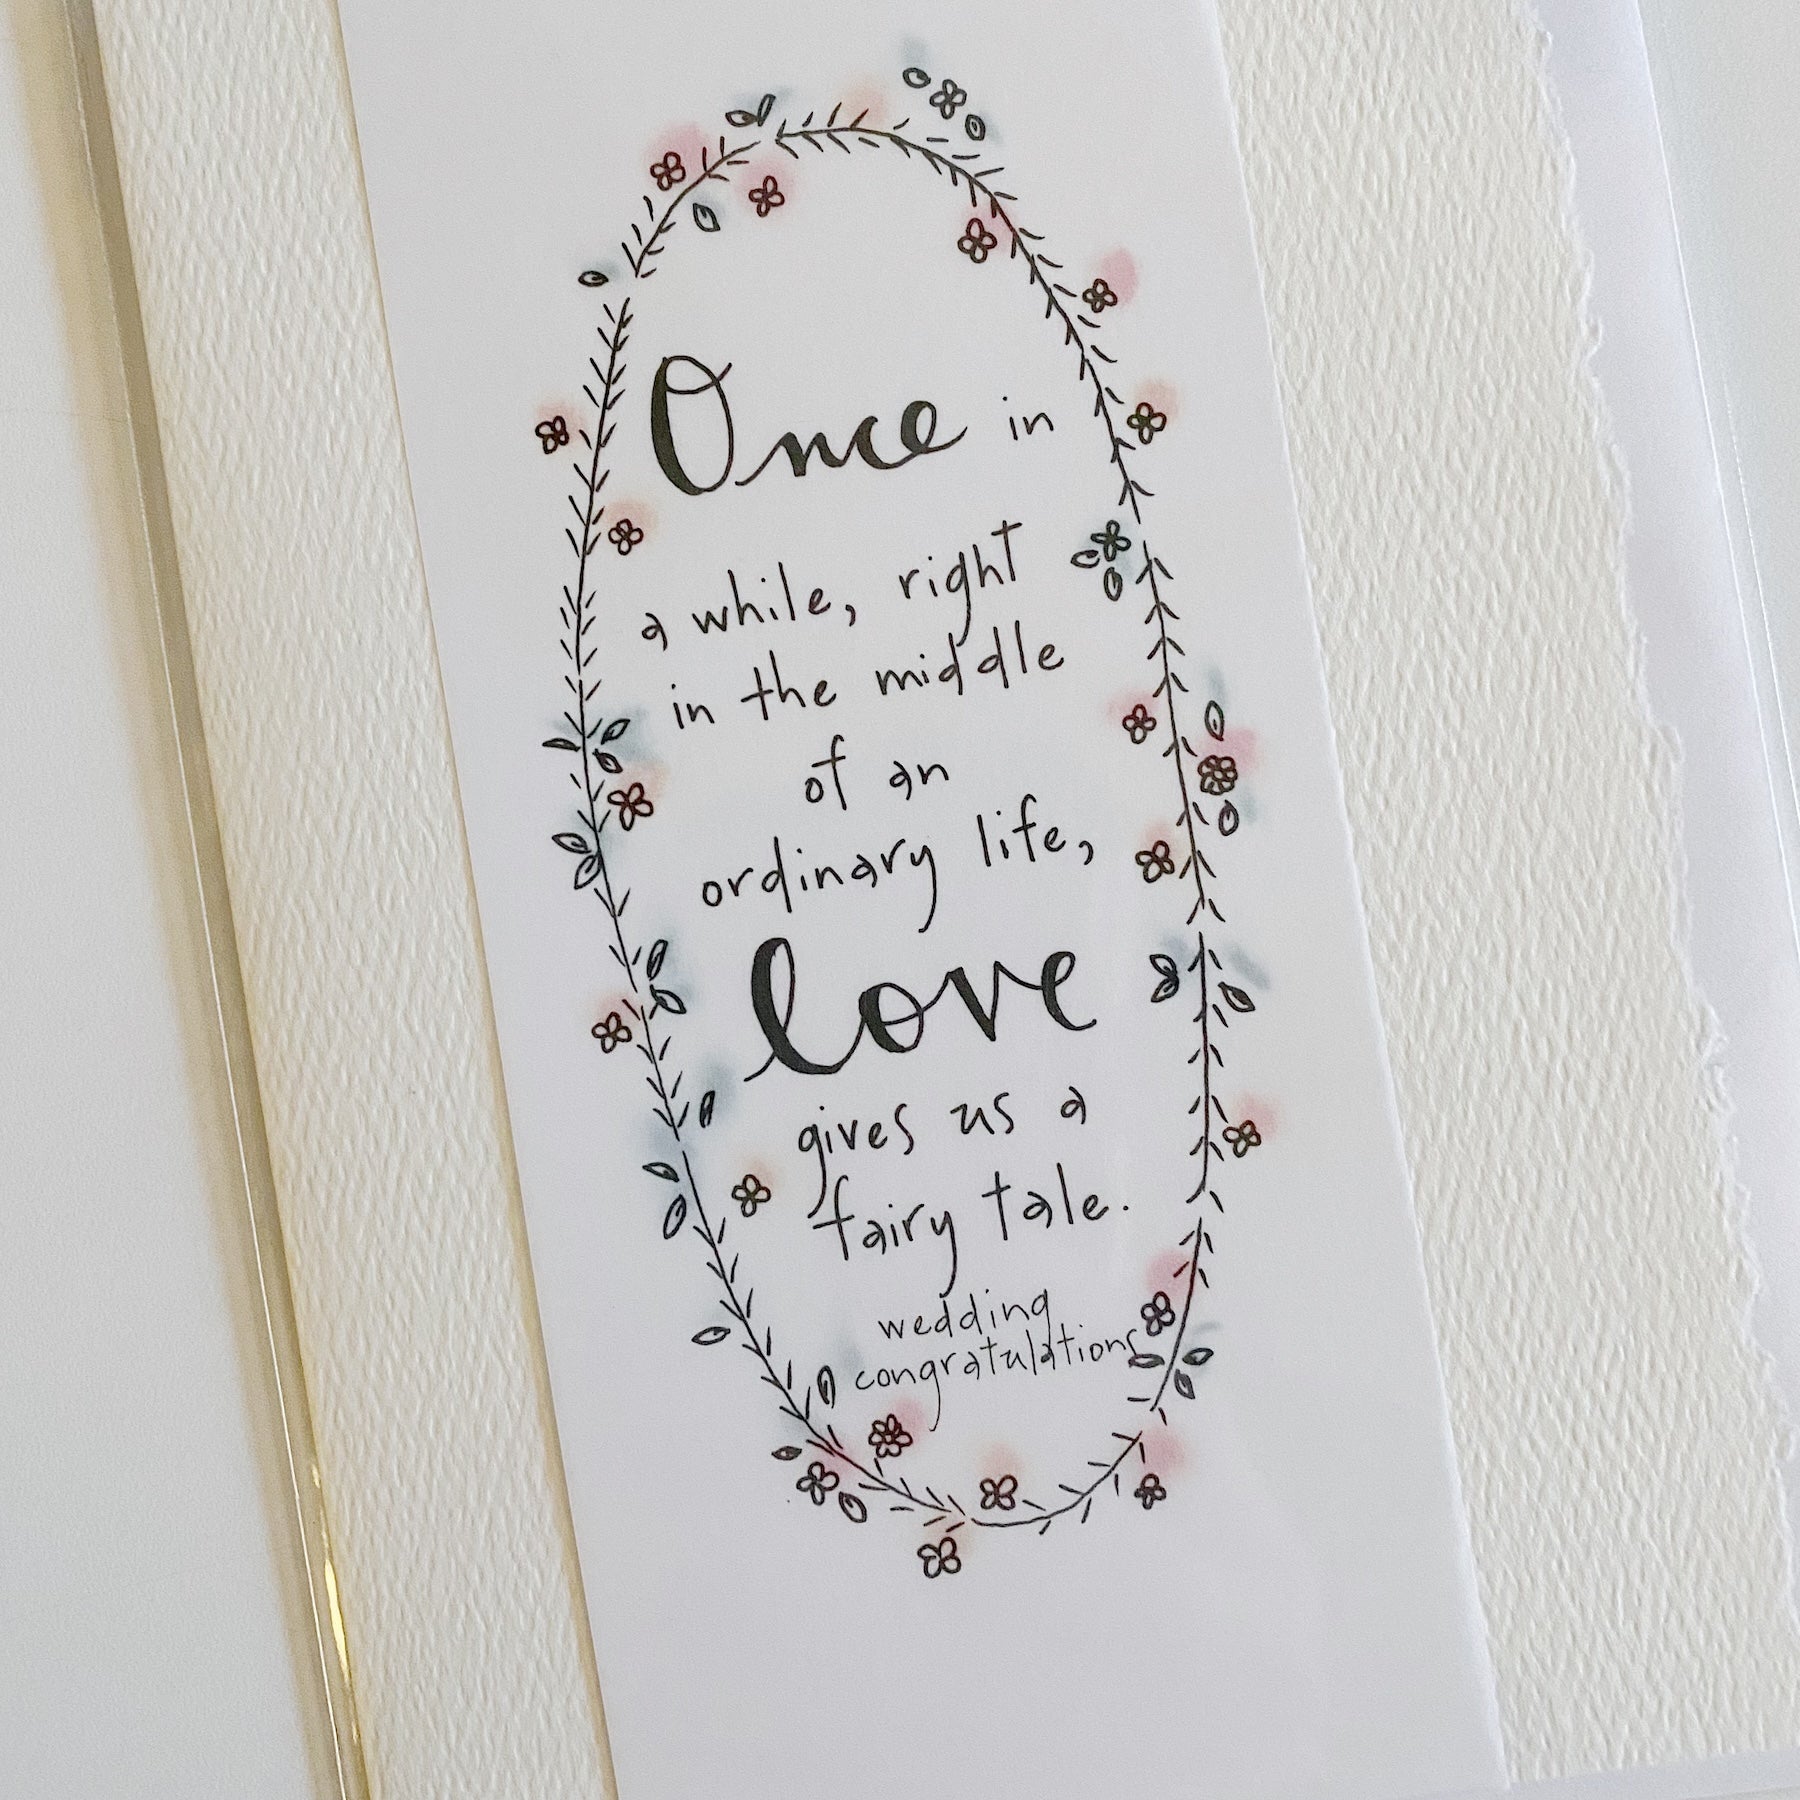 Once in
a while, right
in the middle
of an
ordinary life,
love
gives us a
fairy tale.
wedding
congratulations